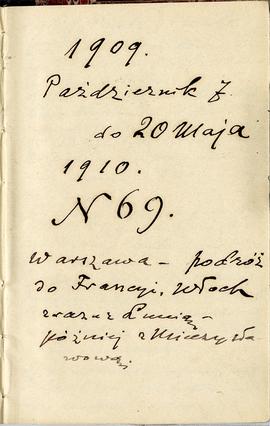 1909.
Październik 7.
do 20 Maja
1910.
N 69.
Warszawa – podróż
do Francyi, Włoch
wraz z
później z